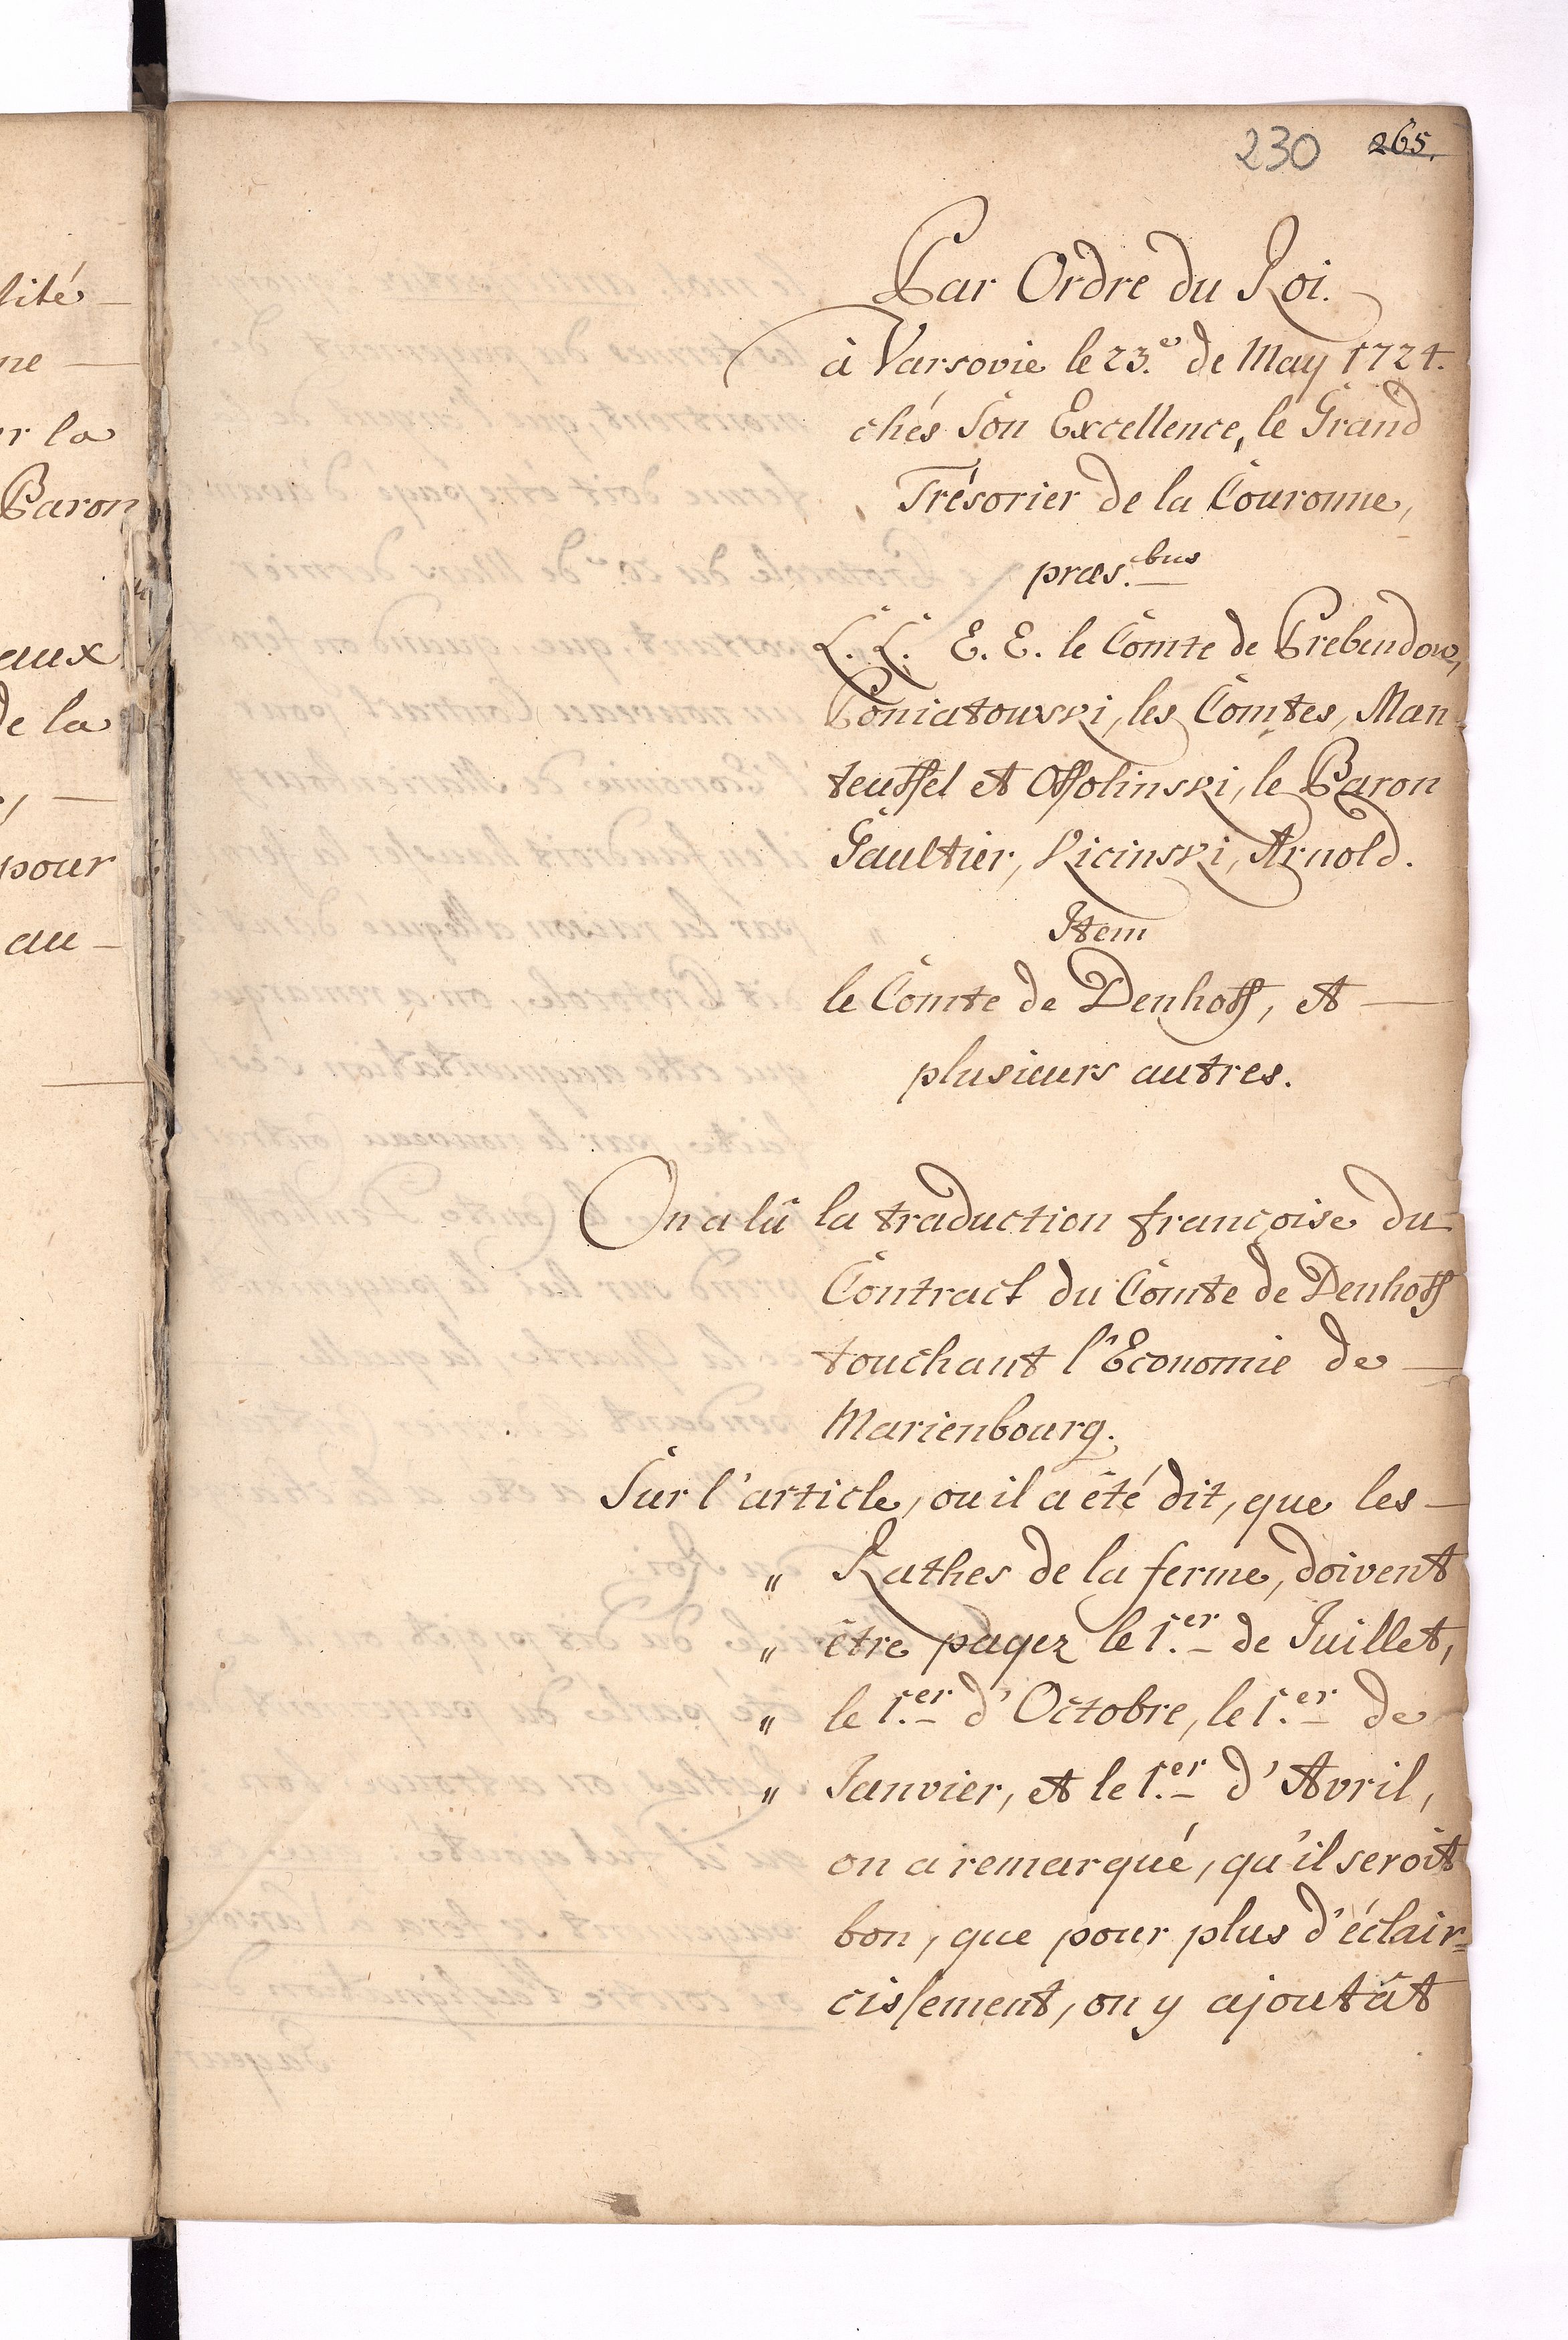 230 265.
Par Ordre du Roi.
à Varsovie le 23.e de May 1724.
chés Son Excellence, le Grand
Trésorier de la Couronne,
præs.bus
L. L. E. E. le Comte de Prebendow,
Poniatowski, les Comtes, Man-
teuffel et Ossolinski, le Baron
Gaultier, Kicinski, Arnold.
Item
le Comte de Denhoff, et —
plusieurs autres.
On a lû la traduction françoise du
Contract du Comte de Denhoff
touchant l'Economie de —
Marienbourg.
Sur l'article, ou il a été dit, que les —
" Rathes de la ferme, doivent
" être payez le 1.er de Juillet,
" le 1.er d'Octobre, le 1.er de
" Janvier, et le 1.er d'Avril,
on a remarqué, qu'il seroit
bon, que pour plus d'éclair=
cissement, on y ajoutât
lité —
ne —
r la
Baron
eaux
de la
pour
au —